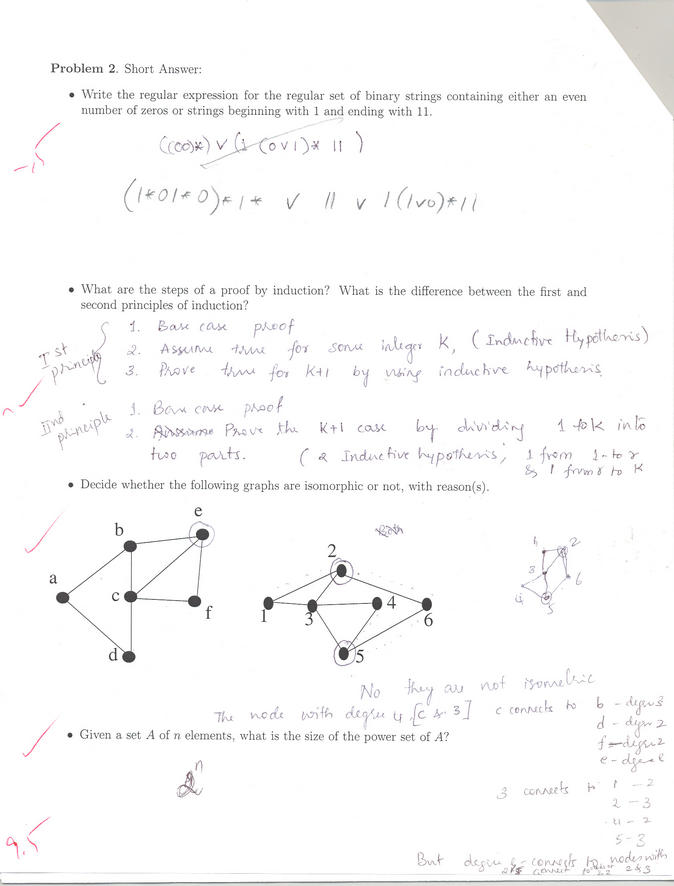 Problem 2. Short Answer:
• Write the regular expression for the regular set of binary strings containing either an even
number of zeros or strings beginning with 1 and ending with 11.
((00)*) ∨ (1 (0∨1)* 11 )
-.5
(1*01*0)*1* ∨ 11 ∨ 1(1∨0)*11
• What are the steps of a proof by induction? What is the difference between the first and
second principles of induction?
Ist principle
1. Base case proof
2. Assume true for some integer K, (Inductive Hypothesis)
3. Prove true for K+1 by using inductive hypothesis
IInd principle
1. Base case proof
2. Prove the K+1 case by dividing 1 to K into
two parts. (2 Inductive hypothesis, 1 from 1 to r
& 1 from r to K
• Decide whether the following graphs are isomorphic or not, with reason(s).
e
b
a
c
f
d
2
1
3
4
6
5
1 2
3
6
4
5
No they are not isometric
The node with degree 4 [c & 3] c connects to b - degree 3
d - degree 2
f - degree 2
e -
• Given a set A of n elements, what is the size of the power set of A?
2ⁿ
3 connects to 1 - 2
2 - 3
4 - 2
5 - 3
9.5
But degree connects to nodes with
connect to 2 & 3